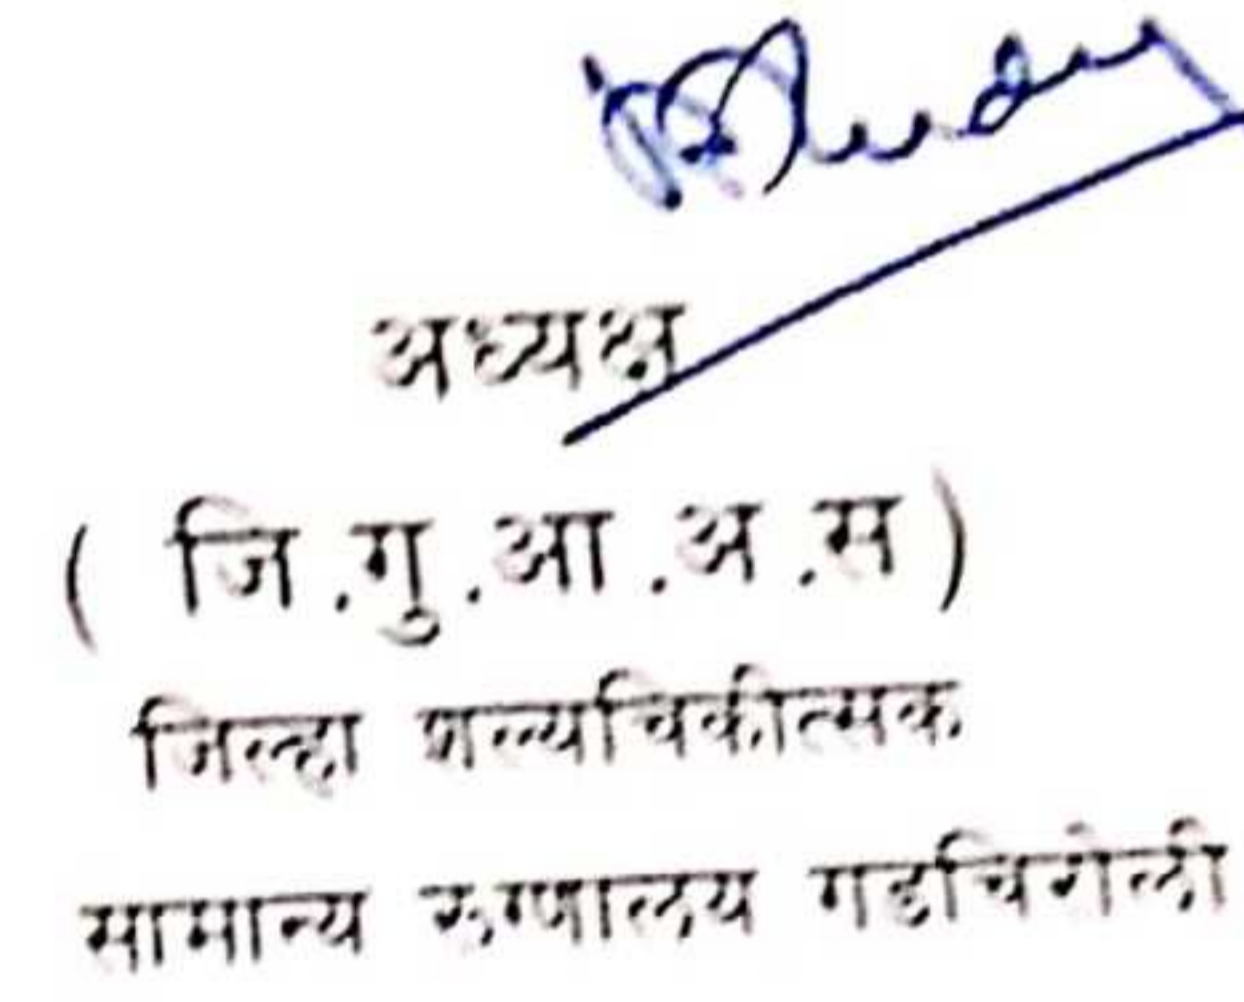 अध्यक्ष
( जि .गु .आ .अ .स )
जिल्हा शल्यचिकीत्सक
सामान्य रुग्णालय गडचिरोली